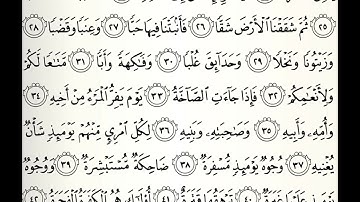 ٢٥ ثُمَّ شَقَقْنَا ٱلْأَرْضَ شَقًّا ٢٦ فَأَنۢبَتْنَا فِيهَا حَبًّا ٢٧ وَعِنَبًا وَقَضْبًا ٢٨
وَزَيْتُونًا وَنَخْلًا ٢٩ وَحَدَآئِقَ غُلْبًا ٣٠ وَفَٰكِهَةً وَأَبًّا ٣١ مَّتَٰعًا لَّكُمْ
وَلِأَنْعَٰمِكُمْ ٣٢ فَإِذَا جَآءَتِ ٱلصَّآخَّةُ ٣٣ يَوْمَ يَفِرُّ ٱلْمَرْءُ مِنْ أَخِيهِ ٣٤
وَأُمِّهِۦ وَأَبِيهِ ٣٥ وَصَٰحِبَتِهِۦ وَبَنِيهِ ٣٦ لِكُلِّ ٱمْرِئٍ مِّنْهُمْ يَوْمَئِذٍ شَأْنٌ
يُغْنِيهِ ٣٧ وُجُوهٌ يَوْمَئِذٍ مُّسْفِرَةٌ ٣٨ ضَاحِكَةٌ مُّسْتَبْشِرَةٌ ٣٩ وَوُجُوهٌ
يَوْمَئِذٍ عَلَيْهَا غَبَرَةٌ ٤٠ تَرْهَقُهَا قَتَرَةٌ ٤١ أُو۟لَٰٓئِكَ هُمُ ٱلْكَفَرَةُ ٱلْفَجَرَةُ ٤٢